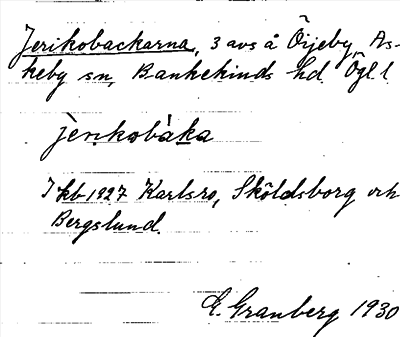 Jerikobackarna, 3 avs å Örjeby, As-
keby sn, Bankekinds hd. Ögl.
jèrikobáka
I kb 1927 Karlsro, Sköldsborg och
Bergslund.
E. Granberg 1930